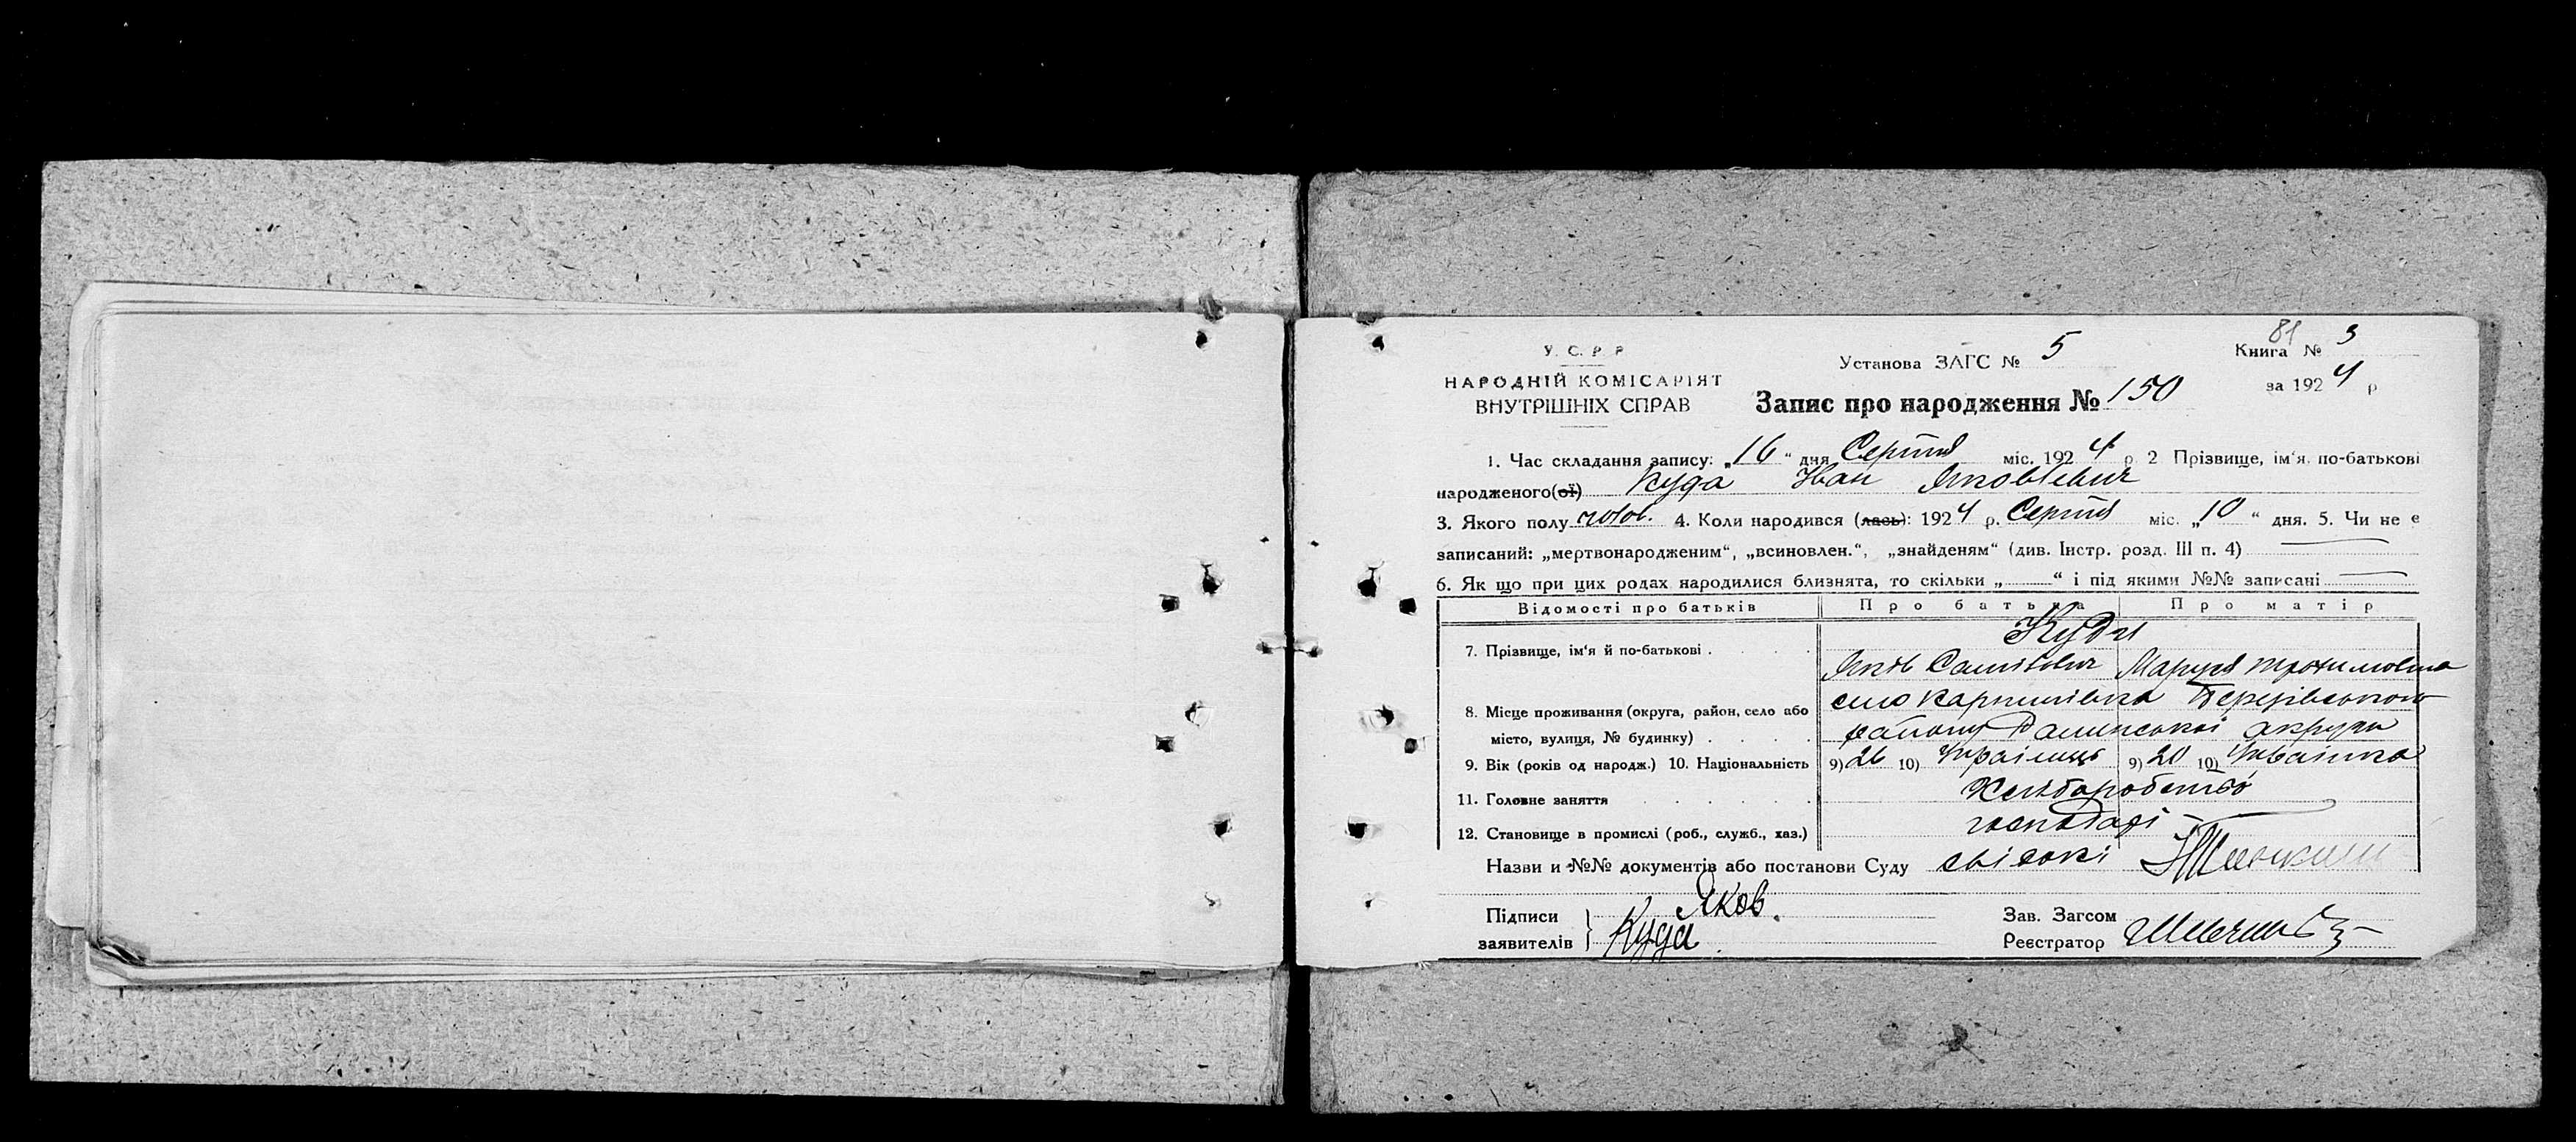 81
У. С. Р. Р.
НАРОДНІЙ КОМІСАРІЯТ
ВНУТРІШНІХ СПРАВ
Установа ЗАГС № 5
Книга № 3
за 1924 р
Запис про народження № 150
1. Час складання запису: „16“ дня Серпня міс. 1924 р. 2 Прізвище, ім'я, по-батькові
народженого(ої) Куда Іван Яковлевич
3. Якого полу чолов. 4. Коли народився (лась): 1924 р. Серпня міс. „10“ дня. 5. Чи не є
записаний: „мертвонародженим“, „всиновлен.“, „знайденям“ (див. Інстр. розд. III п. 4)
6. Як що при цих родах народилися близнята, то скільки „ “ і під якими №№ записані
Відомості про батьків Про батька Про матір
7. Прізвище, ім'я й по-батькові . Куди
Яків Маруся
8. Місце проживання (округа, район, село або село
місто, вулиця, № будинку) . району округи
9. Вік (років од народж.) 10. Національність 9) 26 10) Українець 9) 20 10) Українка
11. Головне заняття Хліборобство
12. Становище в промислі (роб., служб., хаз.) господарі
Назви и №№ документів або постанови Суду
Підписи Яков.
заявителів Куда.
Зав. Загсом
Реєстратор